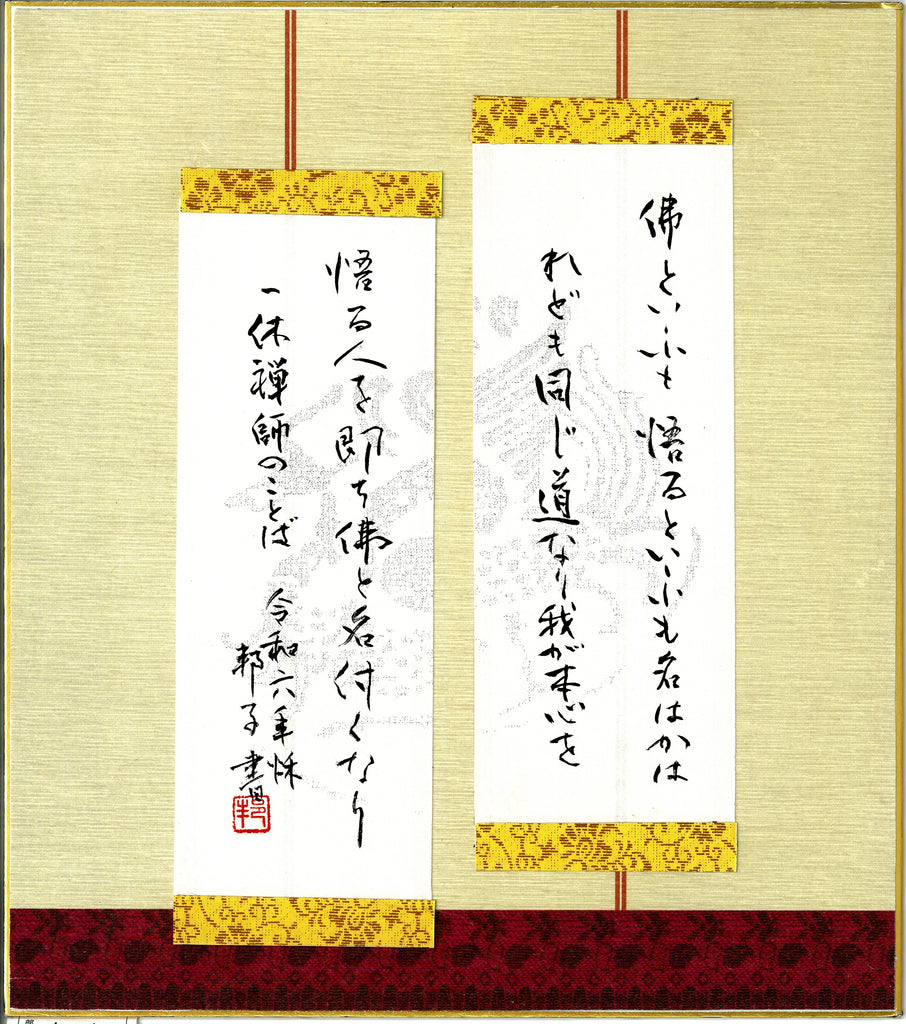 佛といふも 悟るといふも名はかは
れども同じ道なり我が本心を
悟る人を即ち佛と名付くなり
一休禅師のことば
令和六年秋
邦子書
邦